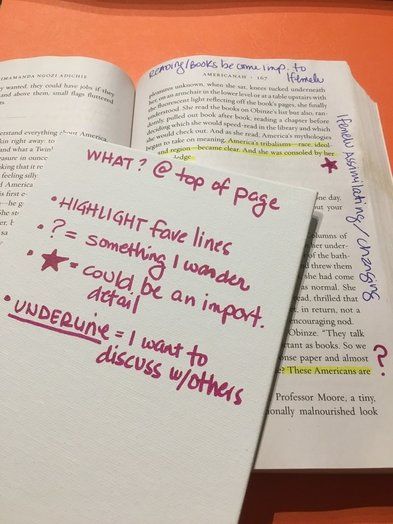 Reading/Books become imp. to
Ifemelu
IMAMANDA NGOZI ADICHIE
y wanted, they could have jobs if they
and above them, small flags fluttered
erstand everything about America
kin right away: to
and what a Twin
easure in ounce
king that it re
feeling silly
AMERICANAH · 167
pleasures unknown, when she sat, knees tucked underneath
her, on an armchair in the lower level or at a table upstairs with
the fluorescent light reflecting off the book's pages, she finally
She read the books on Obinze's list but also, ran-
domly, pulled out book after book, reading a chapter before
deciding which she would speed-read in the library and which
she would check out. And as she read, America's mythologies
began to take on meaning, America's tribalisms—race, ideol-
and region—became clear. And she was consoled by her
ledge.
Ifemelu Assimilating/changing
ne day,
your
olumns of
her under-
of the bath-
threw them
she had come
as normal. She
ead, thrilled that
in return, not a
encouraging nod.
Obinze. "They talk
rtant as books. So we
nse paper and almost
? These Americans are
?
Professor Moore, a tiny,
ionally malnourished look
WHAT? @ top of page
• HIGHLIGHT fave lines
• ? = something I wonder
• ★ = could be an import.
detail
• UNDERLINE = I want to
discuss w/others